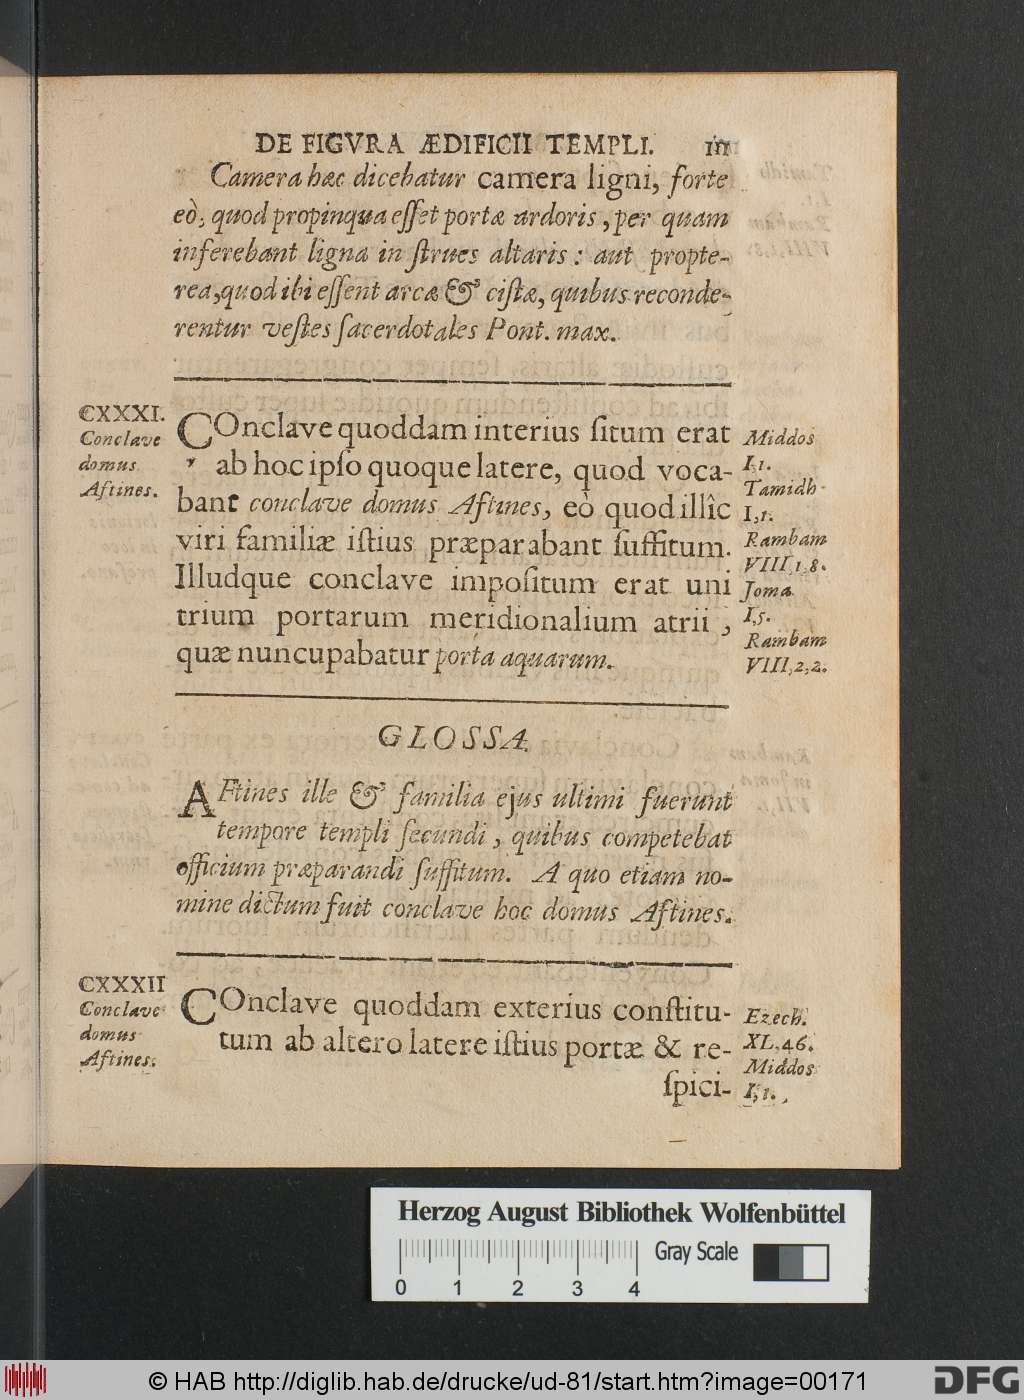 DE FIGVRA ÆDIFICII TEMPLI. 111
Camera hæc dicebatur camera ligni, forte
eò, quod propinqua eſſet portæ ardoris, per quam
inferebant ligna in ſtrues altaris: aut propte-
rea, quod ibi eſſent arcæ & ciſtæ, quibus reconde-
rentur veſtes ſacerdotales Pont. max.
CXXXI.
Conclave
domus
Aftines.
COnclave quoddam interius ſitum erat
ab hoc ipſo quoque latere, quod voca-
bant conclave domus Aftines, eò quod illîc
viri familiæ iſtius præparabant ſuffitum.
Illudque conclave impoſitum erat uni
trium portarum meridionalium atrii,
quæ nuncupabatur porta aquarum.
Middos
I,1.
Tamidh
I,1.
Rambam
VIII,1,8.
Joma
I,5.
Rambam
VIII,2,2.
GLOSSA.
AFtines ille & familia ejus ultimi fuerunt
tempore templi ſecundi, quibus competebat
officium præparandi ſuffitum. A quo etiam no-
mine dictum fuit conclave hoc domus Aftines.
CXXXII
Conclave
domus
Aftines.
COnclave quoddam exterius conſtitu-
tum ab altero latere iſtius portæ & re-
ſpici-
Ezech.
XL,46.
Middos
I,1.
Herzog August Bibliothek Wolfenbüttel
Gray Scale
0 1 2 3 4
© HAB http://diglib.hab.de/drucke/ud-81/start.htm?image=00171
DFG